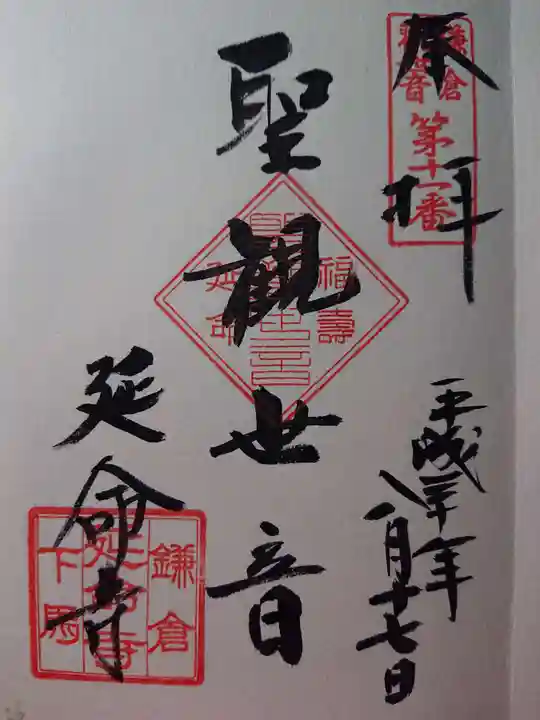 奉拝
鎌倉
観音
第十一番
平成二十八年
八月十七日
聖観世音
福壽
延命
延命寺
鎌倉
延命寺
下馬